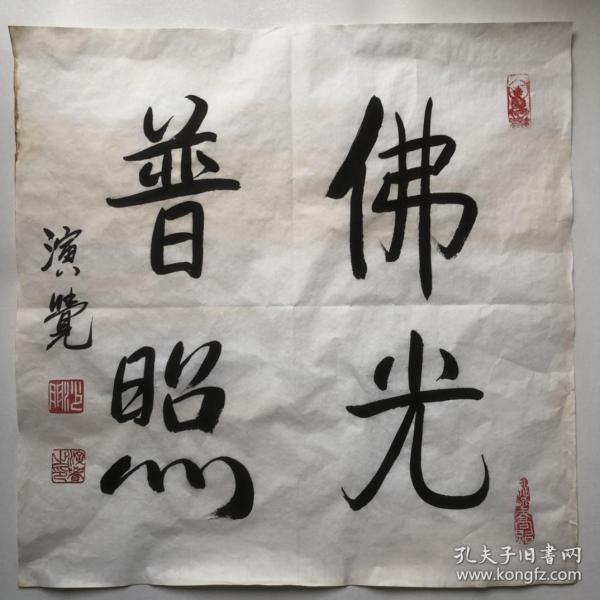 佛光
普照
演覺
孔夫子旧书网
www.kongfz.com